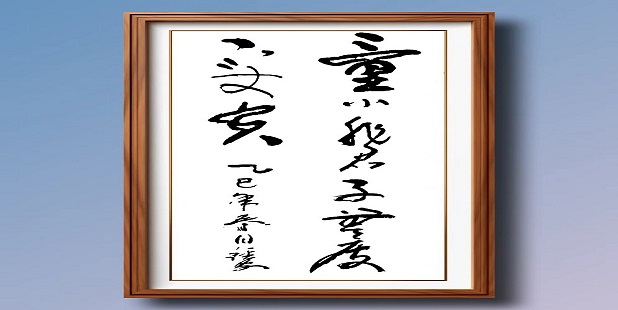 量小非君子無度
不丈夫 乙巳年春